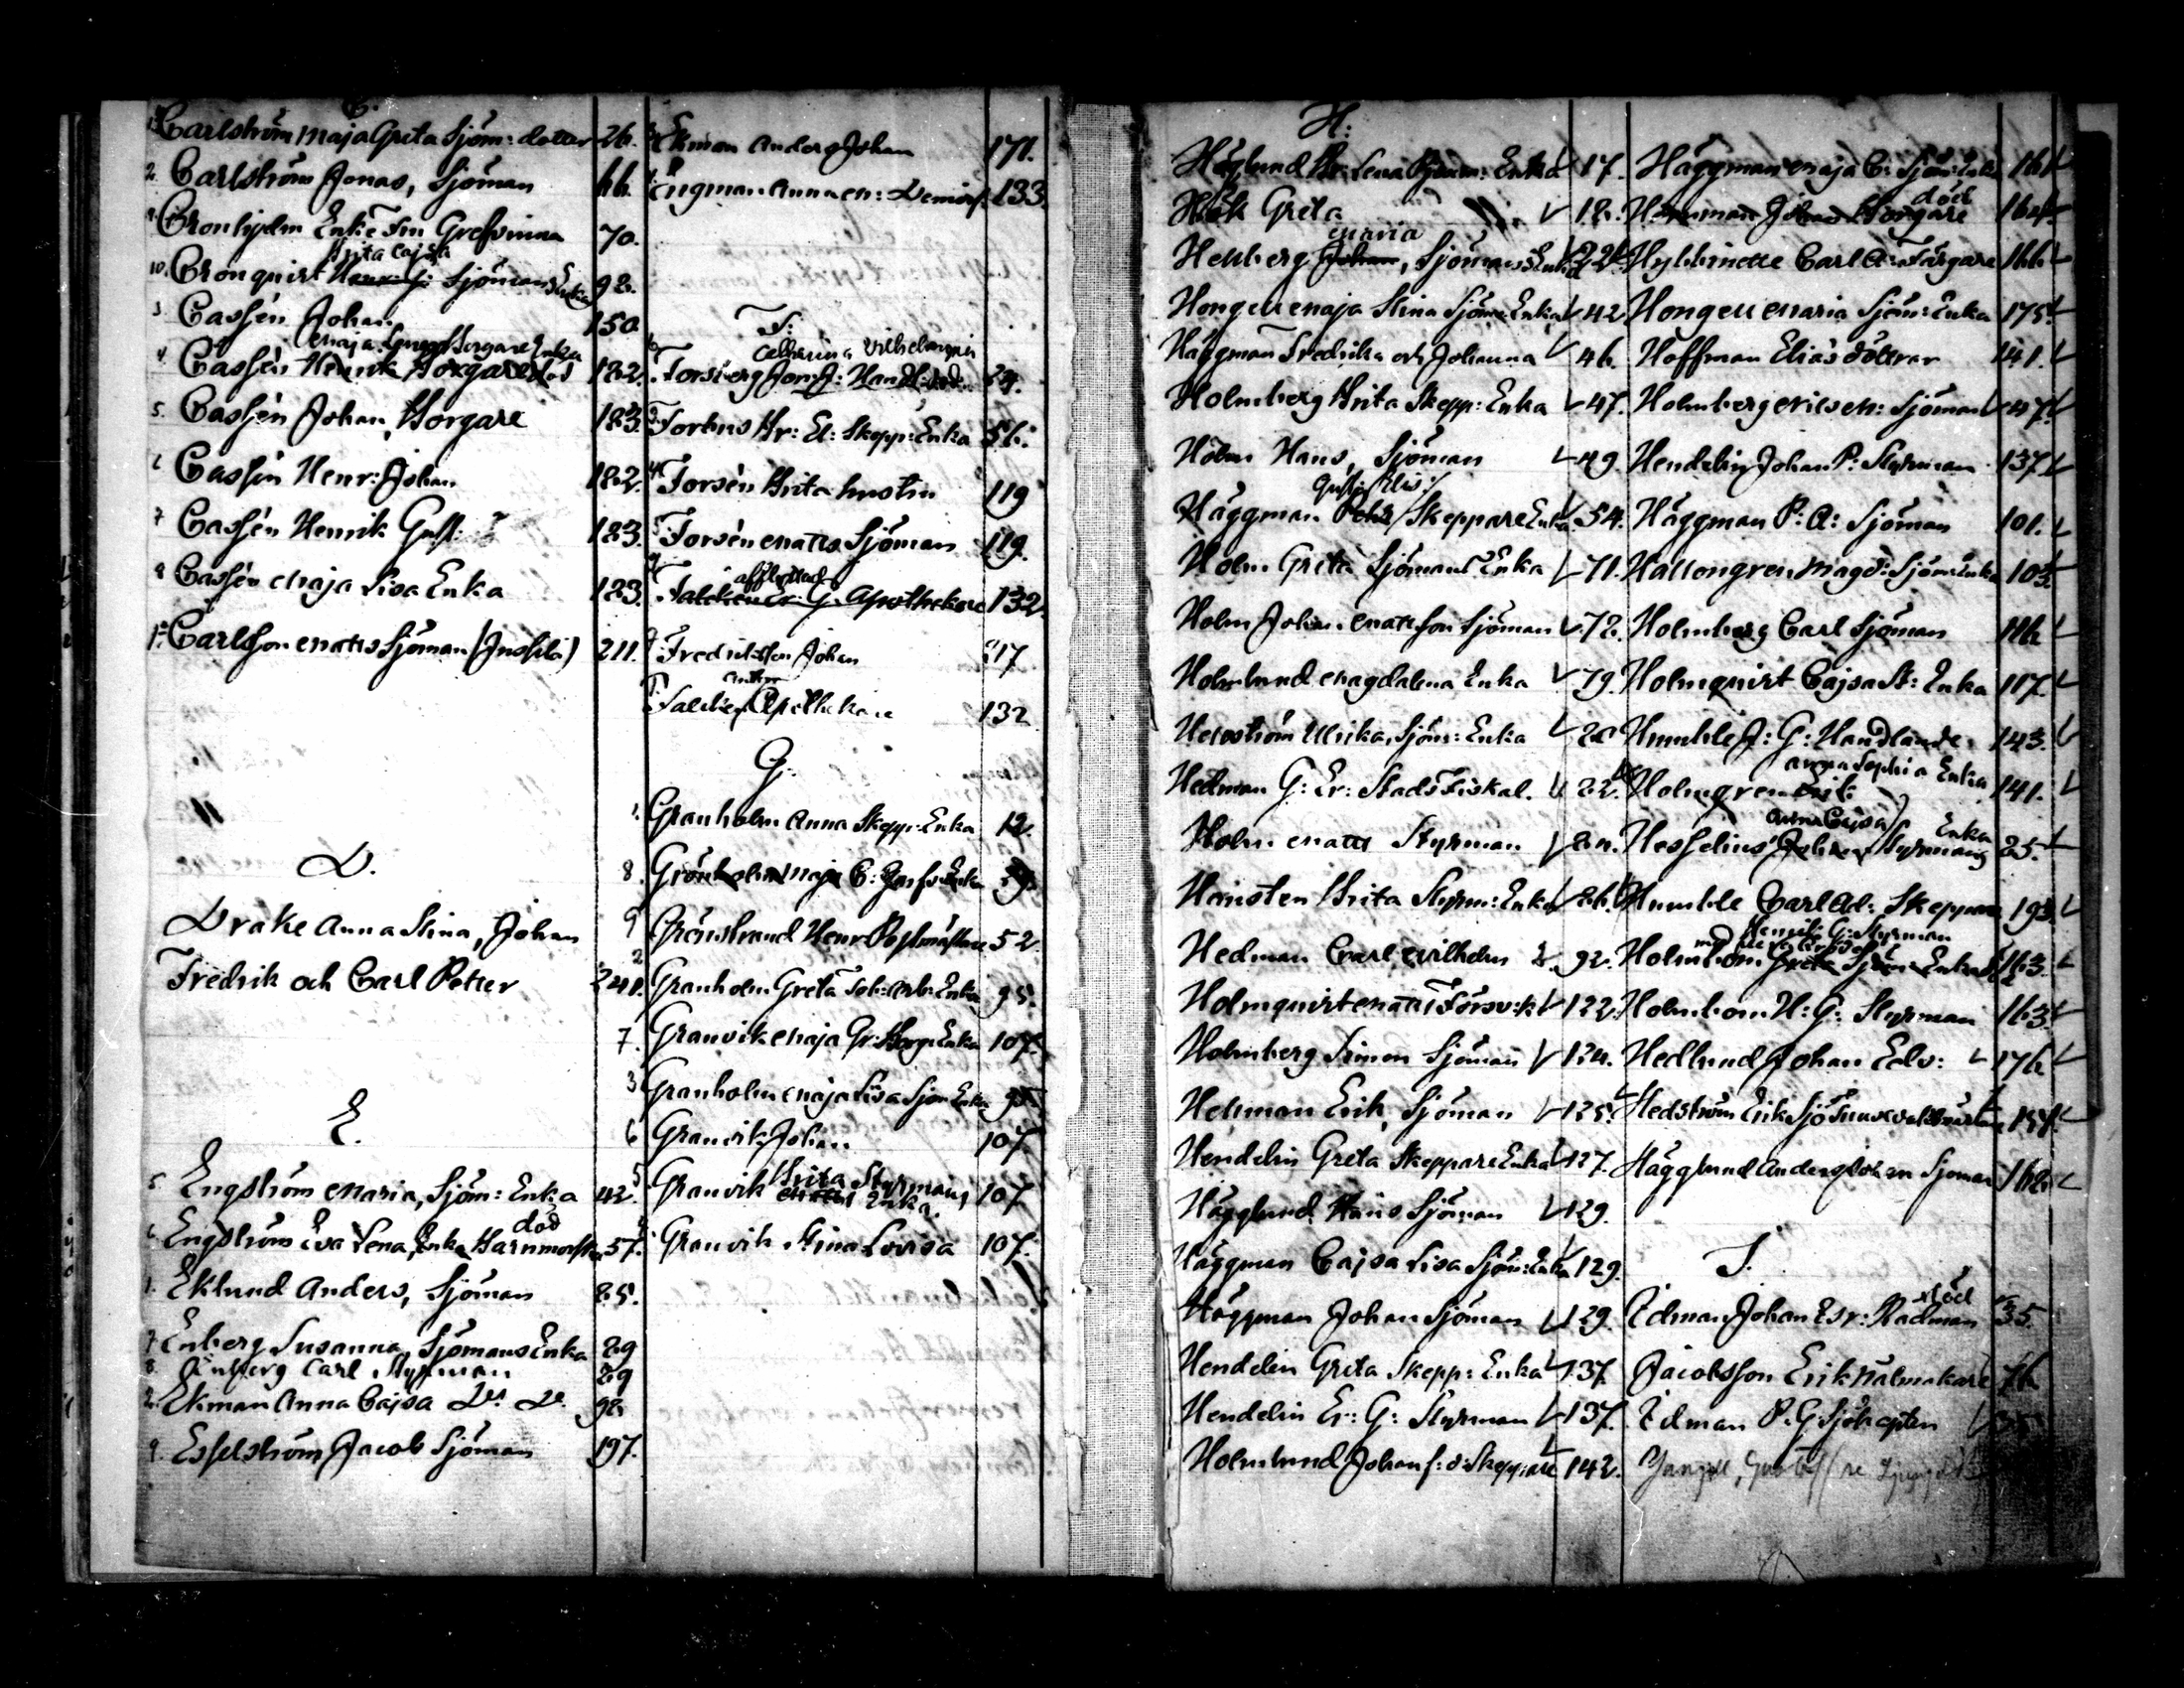 C.
Carlström Maja Greta Sjöm: dotter 26.
2. Carlström Jonas, Sjöman 66.
9. Cronhjelm Enke Fru Grefvinna 70.
Brita Cajsa
10. Cronquist Sjömans Enka 92.
3 Cassén Johan 150
Maja Borgare Enka
4. Cassén Henrik Borgare död 182.
5. Cassén Johan, Borgare 183.
6 Cassén Henr: Johan 182.
7 Cassén Henrik Gust: 183.
8 Cassén Maja Lisa Enka 183.
Carlsson Matts Sjöman 211.
D.
Drake Anna Stina, Johan
Fredrik och Carl Petter 241.
E.
5. Engström Maria, Sjöm: Enka 42.
död
6. Engström Eva Lena, Enka Barnmorska 57.
1. Eklund Anders, Sjöman 85.
7 Enberg Susanna, Sjömans Enka 89
8. Enberg Carl Styrman 89
2. Ekman Anna Cajsa 98
9. Esselström Jacob Sjöman 197.
Ekman Anders Johan 171.
Engman Anna M: 133.
F:
Catharina Vilhelmina
Forsberg Jon J: Handl:
Forbus Br: El: Skepp: Enka 56.
4 Forsén Brita 119
5 Forsén Matts Sjöman 119.
afflyttad
Falcken Er: G. Apothekare 132.
Fredriksson Johan 217
Anton
Falcken Apothekare 132
G.
1. Granholm Anna Skepp: Enka 12.
8. Grönholm Maja C: Enka
9 Grönstrand Henr Postmästare 52
2 Granholm Greta Enka 95.
7. Granvik Maja Gr: Borg: Enka 107.
3 Granholm Maja Lisa Sjöm Enka 95.
6 Granvik Johan 107.
5 Granvik Brita Styrmans Enka. 107
4. Granvik Stina Lovisa 107.
H:
Häglund Br: Lena Enka 17.
Höök Greta 18.
Maria
Hellberg Johan, Sjömans Enka 22.
Hongell Maja Stina Sjöm: Enka 42
Häggman Fredrika och Johanna 46.
Holmberg Brita Skepp: Enka 47.
Holm Hans, Sjöman 49.
Häggman Pehr Skeppare Enka 54.
Holm Greta Sjömans Enka 71.
Holm Johan Mattsson Sjöman 72.
Holmlund Magdalena Enka 79.
Hellström Ulrika, Sjöm: Enka 80
Hedman G: Er: Stads Fiskal. 82.
Holm Matts Styrman 84.
Hansten Brita Styrm: Enka 86.
Hedman Carl Wilhelm 92.
Holmquist Matts Försv:k 122.
Holmberg Simon Sjöman 124.
Hellman Erik, Sjöman 125.
Hendelin Greta Skeppare Enka 127.
Hägglund Hans Sjöman 129.
Häggman Cajsa Lisa Sjöm: Enka 129.
Häggman Johan Sjöman 129.
Hendelin Greta Skepp: Enka 137.
Hendelin Er: G: Styrman 137.
Holmlund Johan f: d: Skeppare 142.
Häggman Maja C: Sjöm: Enka 161
död
Johan Borgare 164.
Hybbinette Carl A: Färgare 166
Hongell Maria Sjöm: Enka 175.
Hoffman Elias döttrar 141.
Holmberg Nils M: Sjöman 47.
Hendelin Johan P: Styrman 137.
Häggman P: A: Sjöman 101.
Hallongren Magd: Sjöm: Enka 103.
Holmberg Carl Sjöman 116
Holmquist Cajsa St: Enka 117.
Humble J: G: Handlande 143.
Anna Sophia Enka
Holmgren Erik 141.
Anna Cajsa Enka
Hesselius Johan Styrmans 25.
Humble Carl Ad: Skeppare 193.
Henrik G: Styrman
Holmbom Greta Sjöm: Enka 163.
Holmbom H: G: Styrman 163.
Hedlund Johan Edv: 176
Hedström Erik Sjö 154.
Hägglund Anders Johan Sjöman 162.
I.
död
Idman Johan Esr: Rådman 35.
Jacobsson Erik Målmakare 76
Idman P. G. Sjökapten 35